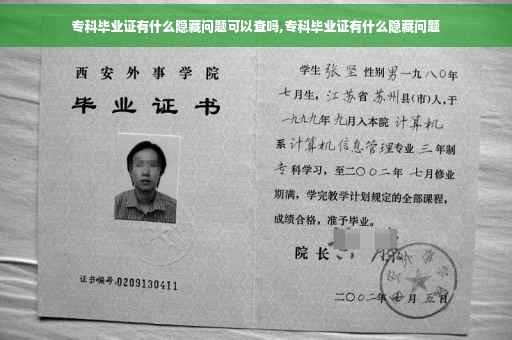 专科毕业证有什么隐藏问题可以查吗,专科毕业证有什么隐藏问题
西安外事学院
毕业证书
证书编号:0209130411
学生 张坚 性别 男 一九八〇年
七月生, 江苏省 苏州县(市)人,于
一九九九年 九月入本院 计算机
系 计算机信息管理专业 三 年制
专 科学习,至二〇〇二年 七月修业
期满,学完教学计划规定的全部课程,
成绩合格,准予毕业。
院长
二〇〇二年 月 五日